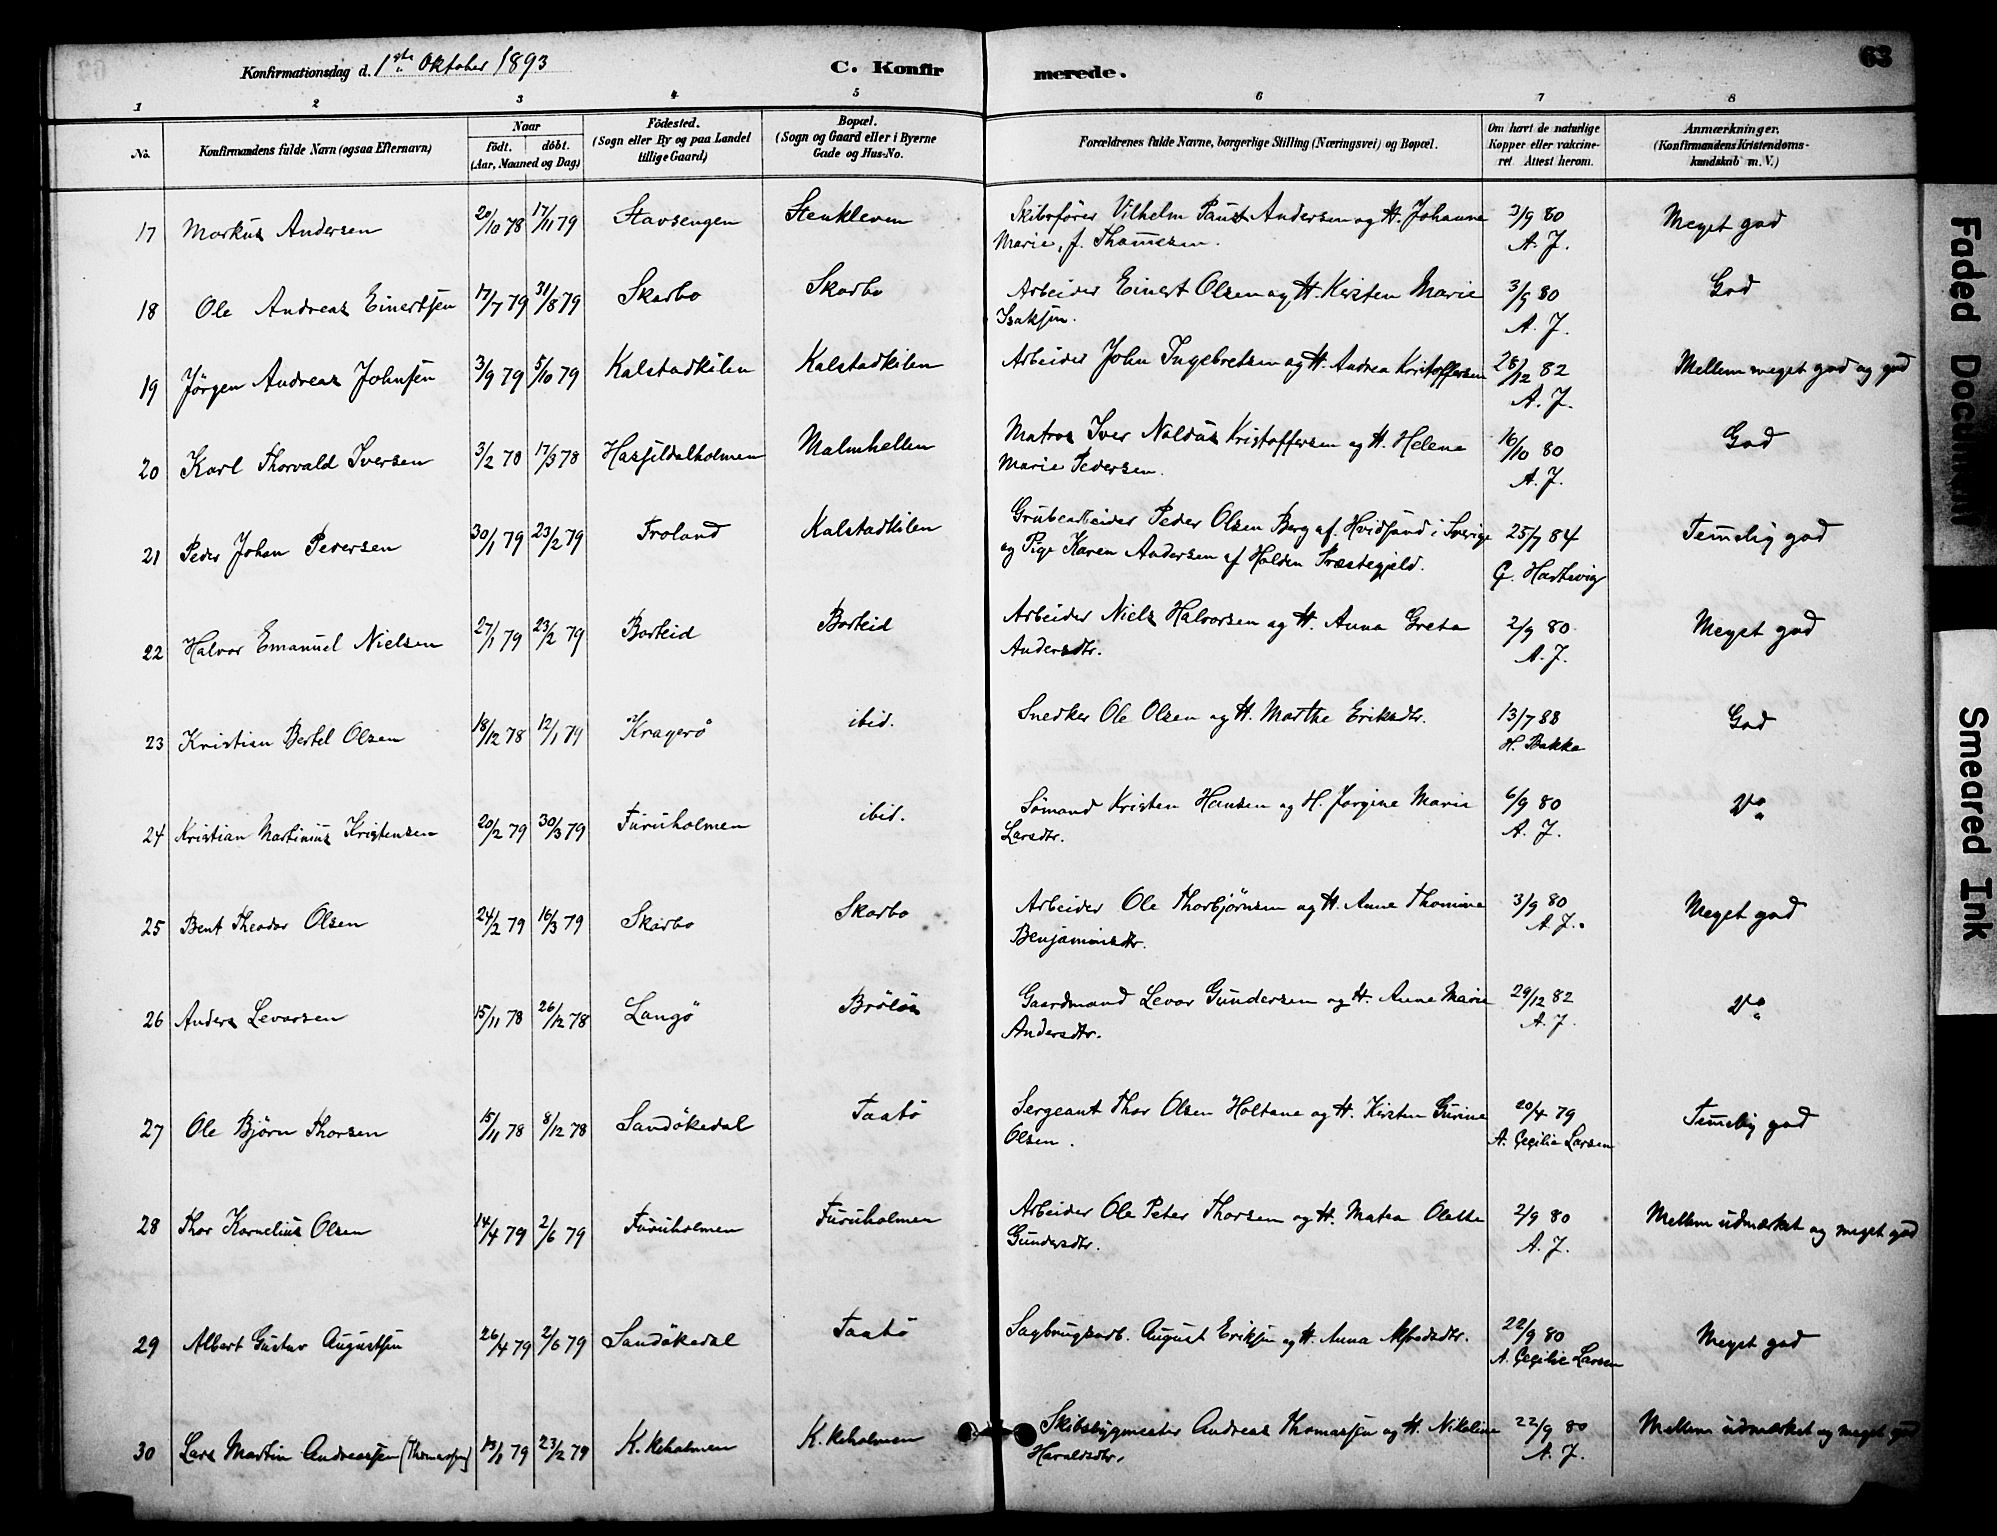 Konfirmationsdag d. 1ste Oktober 1893
C. Konfir
merede.
63
1 2 3 4 5 6 7 8
No.
Konfirmandens fulde Navn (ogsaa Efternavn)
Naar
födt. döbt.
(Aar, Maaned og Dag)
Födested.
(Sogn eller By og paa Landet
tillige Gaard)
Bopæl.
(Sogn og Gaard eller i Byerne
Gade og Hus-No.
Forældrenes fulde Navne, borgerlige Stilling (Næringsvei) og Bopæl.
Om havt de naturlige
Kopper eller vakcine-
ret Attest herom.
Anmærkninger.
(Konfirmandens Kristendoms-
kundskab m. V.)
17 Markus Andersen 20/10 78 17/11 79 Stavsengen Stenkleven Skibsfører Vilhelm Paust Andersen og H. Johanne 3/9 80 Meget god
Marie, f. Thomesen. A. J.
18 Ole Andreas Einertsen 17/7 79 31/8 79 Skarbo Skarbo Arbeider Einert Olsen og H. Kirsten Marie 3/9 80 God
Isaksen. A. J.
19 Jörgen Andreas Johnsen 3/9 79 5/10 79 Kalstadkilen Kalstadkilen Arbeider John Ingebretsen og H. Andrea Kristoffersen 28/12 82 Mellem meget god og god
A. J.
20 Karl Thorvald Iversen 3/2 78 17/3 78 Hasfildalholmen Malmhellen Matros Iver Noldus Kristoffersen og H. Helene 16/10 80 God
Marie Pedersen. A. J.
21 Peder Johan Pedersen 30/1 79 23/2 79 Froland Kalstadkilen Grubearbeider Peder Olsen Berg af Hvidsand i Sverige 25/7 84 Temelig god
og Pige Karen Andersen af Holden Præstegjeld. G. Hartvig
22 Halvor Emanuel Nielsen 27/1 79 23/2 79 Barteid Barteid Arbeider Niels Halvorsen og H. Anna Greta 2/9 80 Meget god
Andersdtr. A. J.
23 Kristian Bertel Olsen 18/12 78 12/1 79 Kragerö ibid. Snedker Ole Olsen og H. Marthe Eriksdtr. 13/7 88 God
H. Bakka
24 Kristian Martinius Kristensen 20/2 79 30/3 79 Furuholmen ibid. Sömand Kristen Hansen og H. Jorgine Marie 6/9 80 Do
Larsdtr. A. J.
25 Bent Theodor Olsen 24/2 79 16/3 79 Skarbo Skarbo Arbeider Ole Thorbjörnsen og H. Anne Thomine 3/9 80 Meget god
Benjaminsdtr. A. J.
26 Anders Levorsen 15/11 78 26/12 78 Langö Gaardmand Levor Gundersen og H. Anne Marie 29/12 82 Do
Andersdtr. A. J.
27 Ole Björn Thorsen 15/11 78 8/12 78 Sandökedal Taatö Sergeant Thor Olsen Holtane og H. Kirsten Gurine 20/4 79 Temelig god
Olsen. A. Cecilie Larsen
28 Thor Kornelius Olsen 14/4 79 2/6 79 Furuholmen Furuholmen Arbeider Ole Peter Thorsen og H. Matea Olette 2/9 80 Mellem udmærket og meget god
Gundersdtr. A. J.
29 Albert Gustav Augustsen 26/4 79 2/6 79 Sandökedal Taatö Sagbrugsarb. August Eriksen og H. Anna Alfredsdtr. 22/9 80 Meget god
A. Cecilie Larsen
30 Lars Martin Andreassen (Thomassen) 13/1 79 23/2 79 K.keholmen K.keholmen Skibsbygmester Andreas Thomassen og H. Nikoline 22/9 80 Mellem udmærket og meget god
Haraldsdtr. A. J.
Faded Document
Smeared Ink